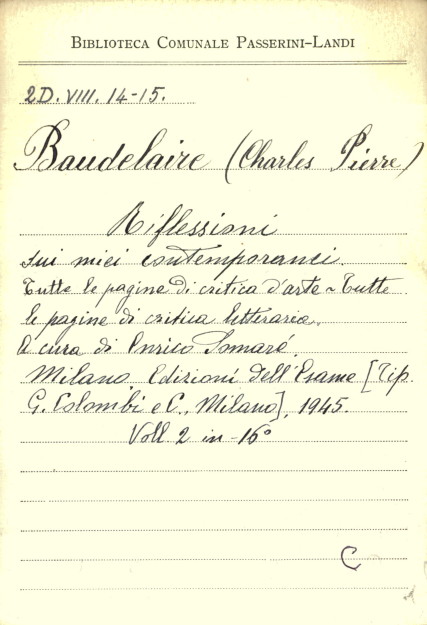 BIBLIOTECA COMUNALE PASSERINI-LANDI
2D. VIII. 14-15.
Baudelaire (Charles Pierre)
Riflessioni
sui miei contemporanei.
Tutte le pagine di critica d'arte - Tutte
le pagine di critica letteraria.
A cura di Enrico Somaré.
Milano, Edizioni dell'Esame [Tip.
G. Colombi e C., Milano], 1945.
Voll. 2 in-16°
C